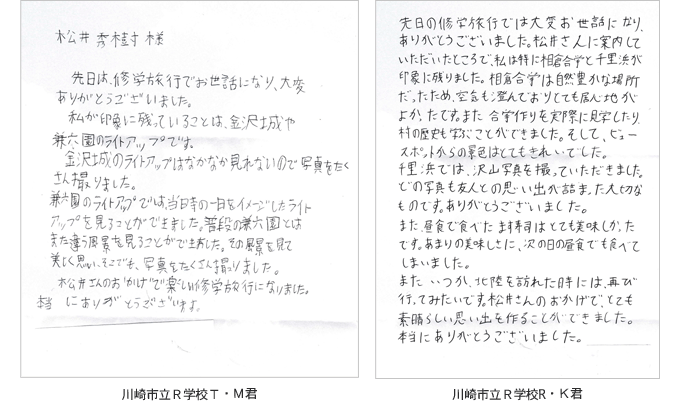 松井 秀樹 様
先日は、修学旅行でお世話になり、大変
ありがとうございました。
私が印象に残っていることは、金沢城や
兼六園のライトアップです。
金沢城のライトアップはなかなか見れないので写真をたく
さん撮りました。
兼六園のライトアップでは、当時の一日をイメージしたライト
アップを見ることができました。普段の兼六園とは
また違う風景を見ることができました。その風景を見て
美しく思い、そこでも、写真をたくさん撮りました。
松井さんのおかげで楽しい修学旅行になりました。
本当 にありがとうございます。
川崎市立R学校T・M君
先日の修学旅行では大変お世話になり、
ありがとうございました。松井さんに案内して
いただいたところで、私は特に相倉合掌と千里浜が
印象に残りました。相倉合掌は自然豊かな場所
だったため、空気も澄んでおりとても居心地が
よかったです。また 合掌作りを実際に見学したり、
村の歴史も学ぶことができました。そして、ビュー
スポットからの景色はとてもきれいでした。
千里浜では、沢山写真を撮っていただきました。
どの写真も友人との思い出が詰まった大切な
ものです。ありがとうございました。
また、昼食で食べた ます寿司はとても美味しかった
です。あまりの美味しさに、次の日の昼食でも食べて
しまいました。
また いつか、北陸を訪れた時には、再び
行ってみたいです。松井さんのおかげで、とても
素晴らしい思い出を作ることができました。
本当にありがとうございました。
川崎市立R学校R・K君